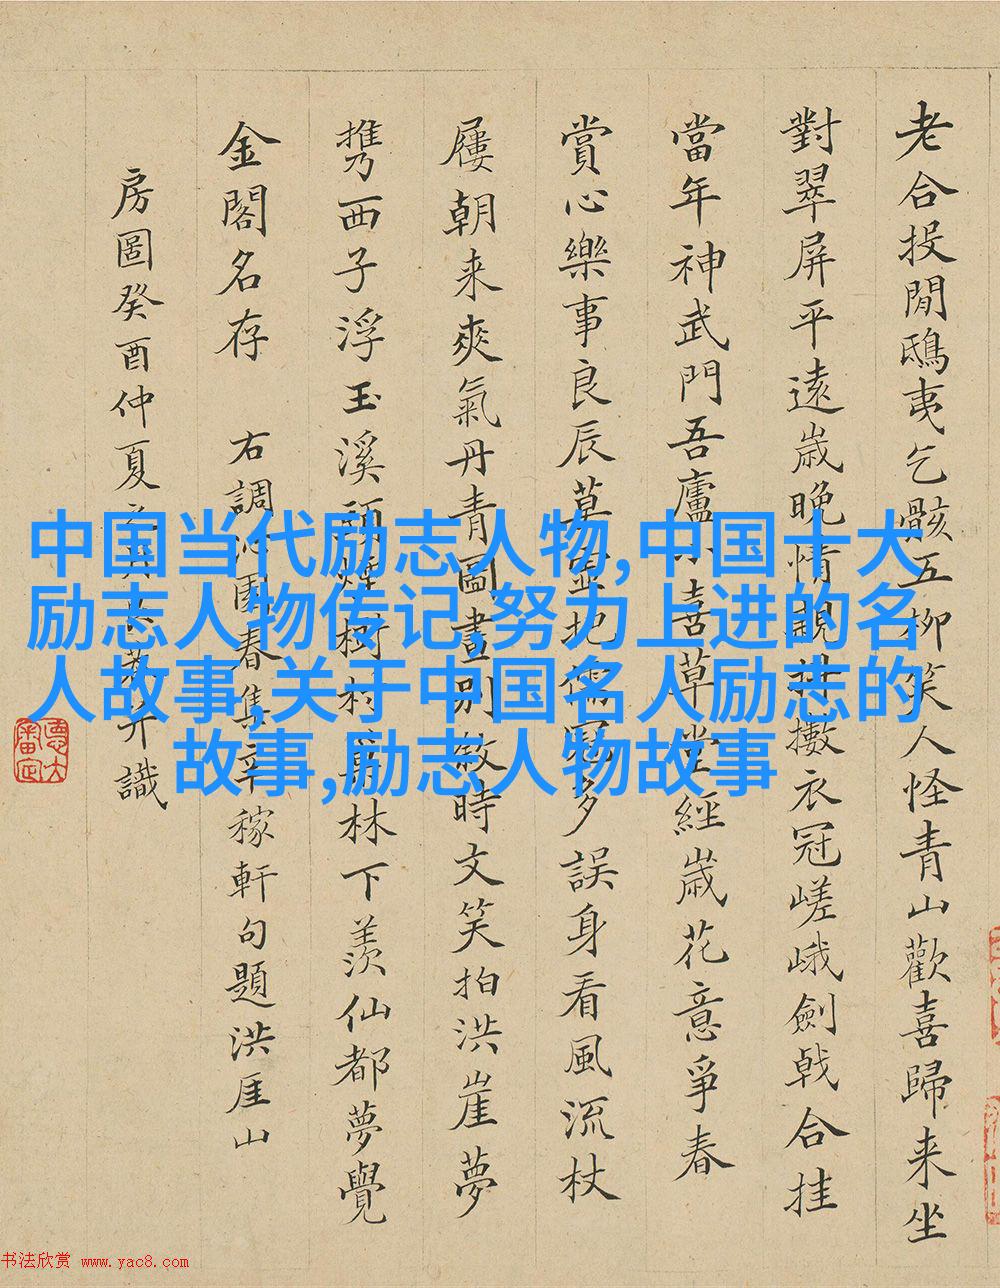 老合投閒鴟夷乞骸五柳笑人怪青山歡喜歸来坐
對翠屏平遠歲晚情親衣冠嵯峨劍戟合挂
當年神武門吾廬小喜草堂經歲花意爭春
賞心樂事良辰莫把儒冠多誤身看風流杖
屨朝来爽氣丹青圖畫別時文笑拍洪崖夢
携西子浮玉溪頭煙樹村林下羨仙都夢覺
金閣名存 右調沁園春集辛稼軒句題洪厓山
房圖癸酉仲夏之識
中国当代励志人物,中国十大
励志人物传记,努力上进的名
人故事,关于中国名人励志的
故事,励志人物故事
书法欣赏 www.yac8.com